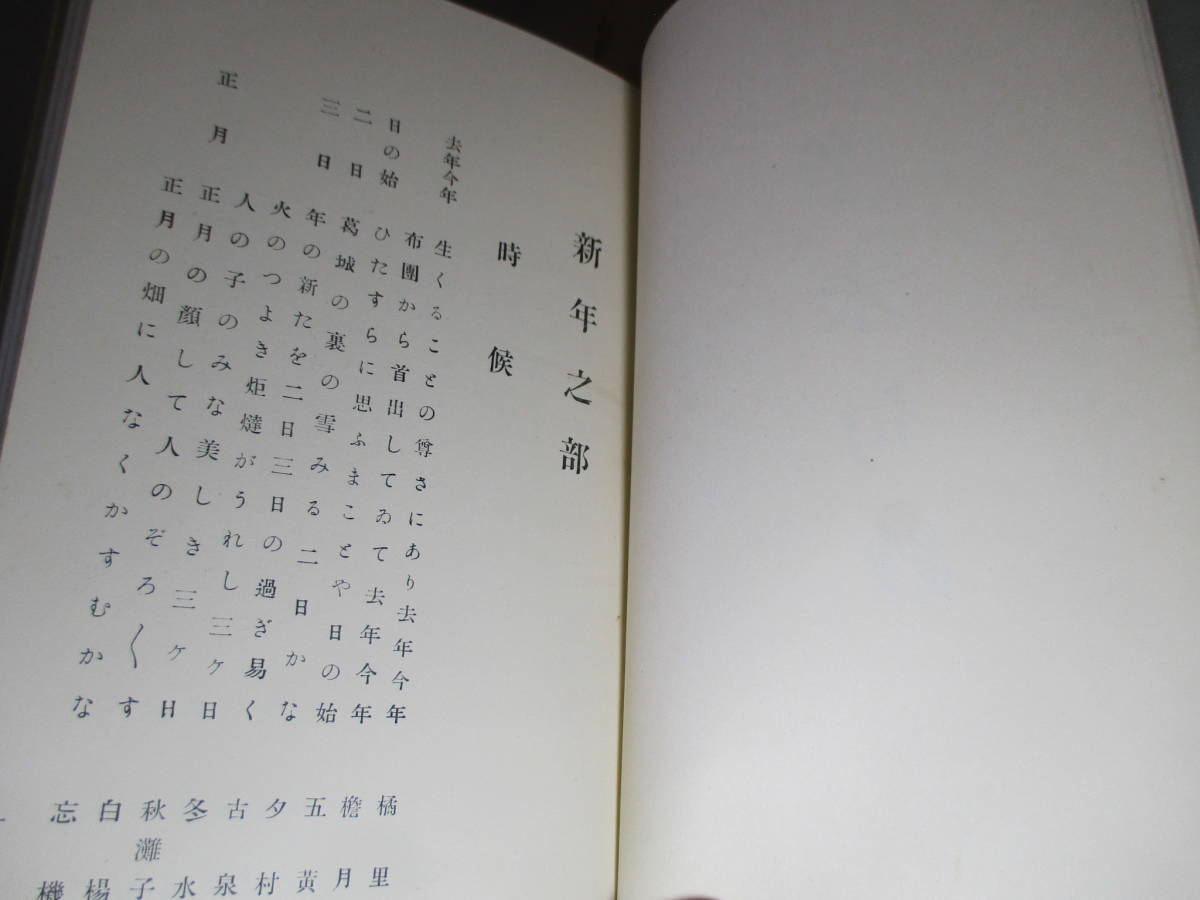 新年之部
時候
去年今年 生くることの尊さにあり去年今年 橘里
布團から首出してゐて去年今年 檐月
日の始 ひたすらに思ふまことや日の始 五黃
二日 葛城の裏の雪みる二日かな 夕村
三日 年の新たを二日三日の過ぎ易く 古泉
火のつよき炬燵がうれし三ヶ日 冬水
人の子のみな美しき三ヶ日 秋灘子
正月 正月の顏して人のぞろ〱す 白楊
正月の畑に人なくかすむかな 忘機